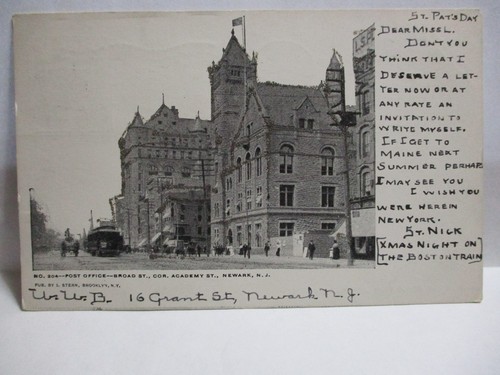 St. Pat's Day
Dear Miss L.
Don't you
think that I
deserve a let-
ter now or at
any rate an
invitation to
write myself.
If I get to
Maine next
Summer perhaps
I may see you
I wish you
were here in
New York.
St. Nick
[Xmas Night on
the Boston Train]
NO. 224—POST OFFICE—BROAD ST., COR. ACADEMY ST., NEWARK, N. J.
PUB. BY L. STERN, BROOKLYN, N.Y.
16 Grant St, Newark N. J.